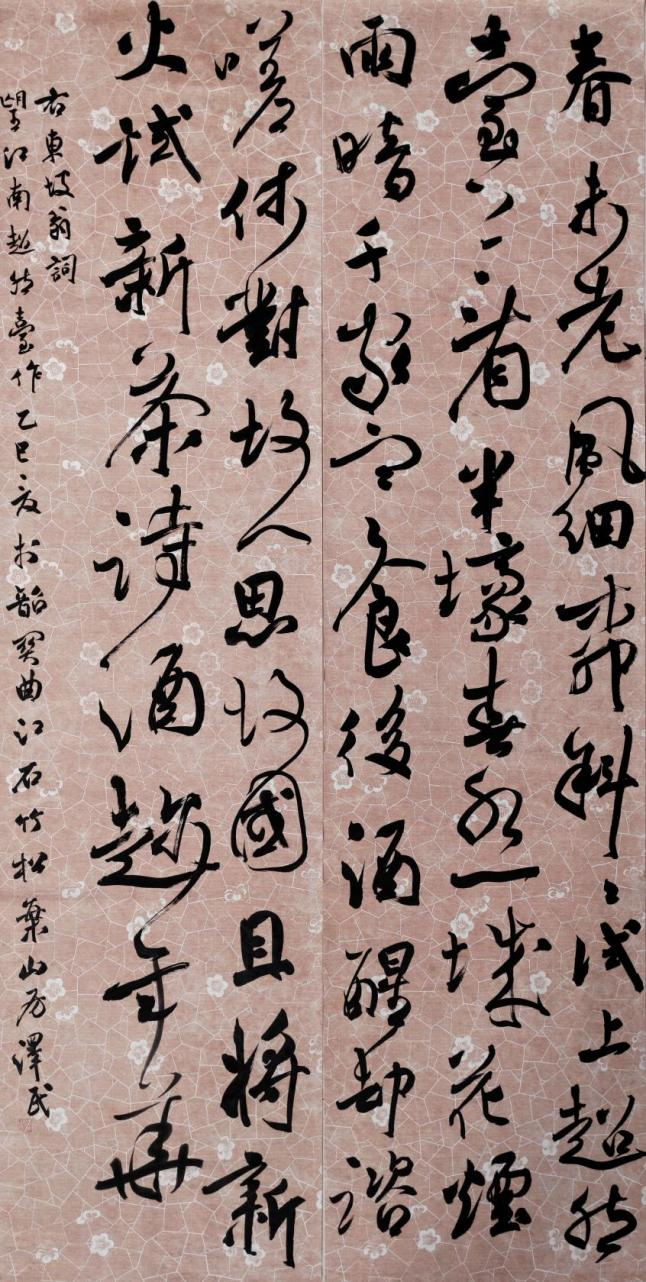 春未老風細柳斜々試上超然
臺上看半壕春水一城花煙
雨暗千家寒食後酒醒却諮
嗟休對故人思故國且將新
火試新茶詩酒趁年華
右東坡翁詞
望江南超然臺作乙巳夏於韶關曲江石竹松葉山房澤民